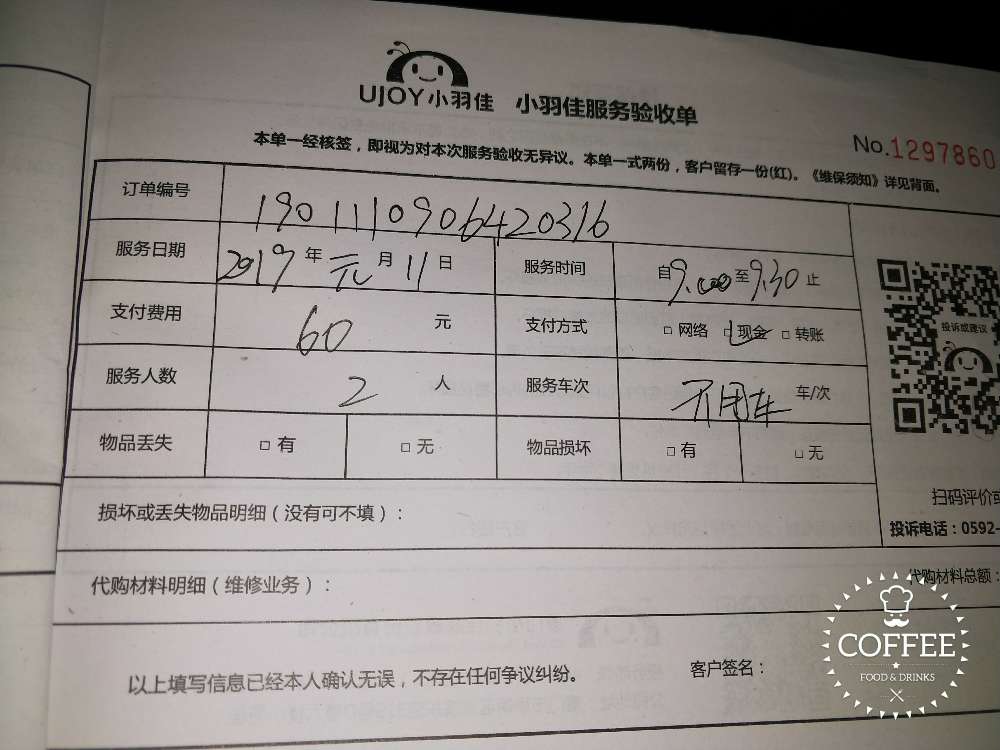 UJOY小羽佳 小羽佳服务验收单
No.1297860
本单一经核签，即视为对本次服务验收无异议。本单一式两份，客户留存一份(红)。《维保须知》详见背面。
订单编号 1901110906420316
服务日期 2019 年 元 月 11 日 服务时间 自 9.00 至 9.30 止
支付费用 60 元 支付方式 □ 网络 □ 现金 □ 转账
投诉或建议
服务人数 2 人 服务车次 不用车 车/次
物品丢失 □ 有 □ 无 物品损坏 □ 有 □ 无
扫码评价或
损坏或丢失物品明细（没有可不填）：
投诉电话：0592-
代购材料明细（维修业务）： 代购材料总额：
以上填写信息已经本人确认无误，不存在任何争议纠纷。 客户签名：
COFFEE
FOOD & DRINKS